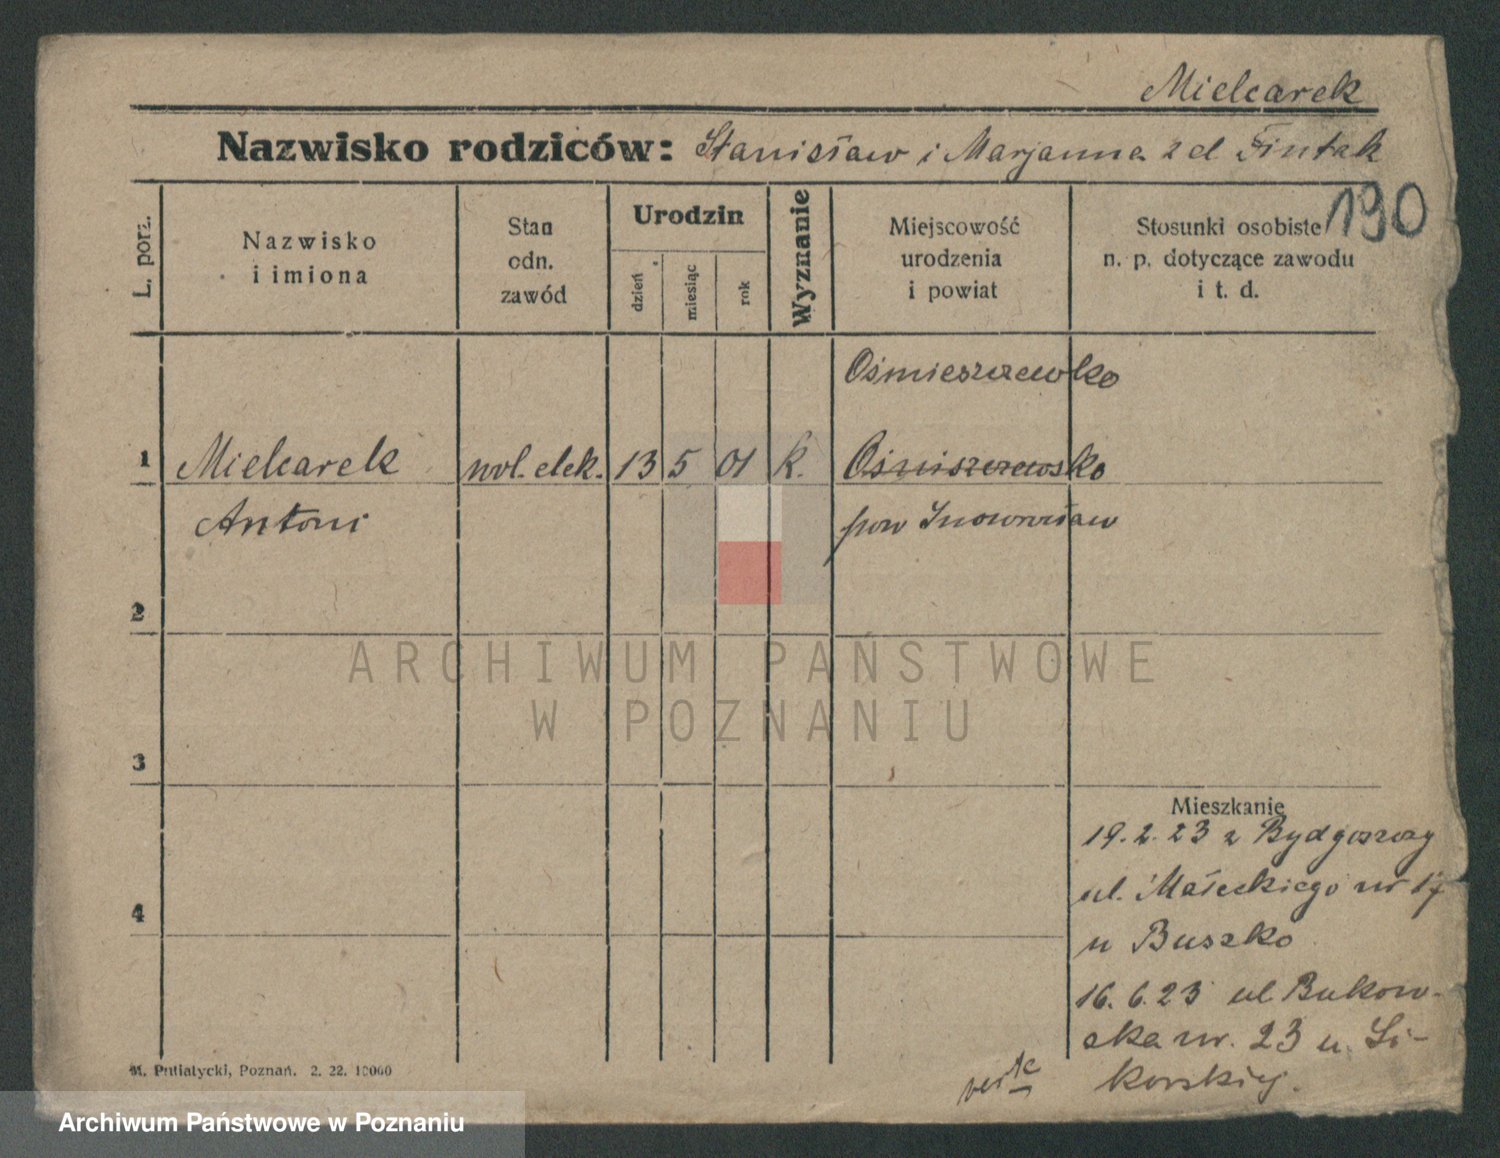 Mielcarek
Nazwisko rodziców: Stanisław i Marjanna z d Fintak
190
L. porz.
Nazwisko
i imiona
Stan
odn.
zawód
Urodzin
dzień
miesiąc
rok
Wyznanie
Miejscowość
urodzenia
i powiat
Stosunki osobiste
n. p. dotyczące zawodu
i t. d.
Ośmieszczewko
1 Mielcarek wol. elek. 13 5 01 k. Ośniszczewsko
Antoni pow Inowrocław
2
ARCHIWUM PAŃSTWOWE
W POZNANIU
3
Mieszkanie
19.2.23 z Bydgoszczy
ul. Małeckiego nr 17
4
u Buszko
16.6.23 ul Bukow-
ska nr. 23 u. Si-
korskiej.
M. Putiatycki, Poznań. 2. 22. 10000
Archiwum Państwowe w Poznaniu